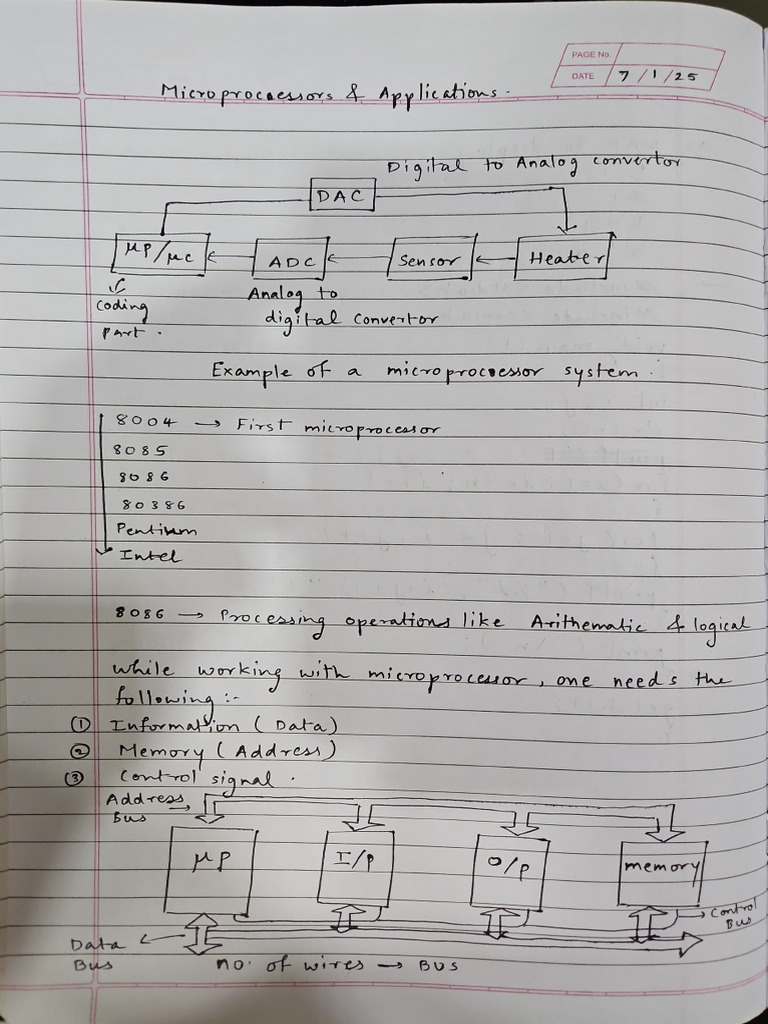 PAGE No.
DATE 7/1/25
Microprocessors & Applications.
Digital to Analog convertor
DAC
μP/μC
ADC
Sensor
Heater
Coding
part.
Analog to
digital convertor
Example of a microprocessor system.
8004 → First microprocessor
8085
8086
80386
Pentium
Intel
8086 → Processing operations like Arithematic & logical
while working with microprocessor, one needs the
following :-
① Information (Data)
② Memory (Address)
③ Control signal.
Address
Bus
μP
I/P
O/P
memory
Control
Bus
Data
Bus
no. of wires → BUS